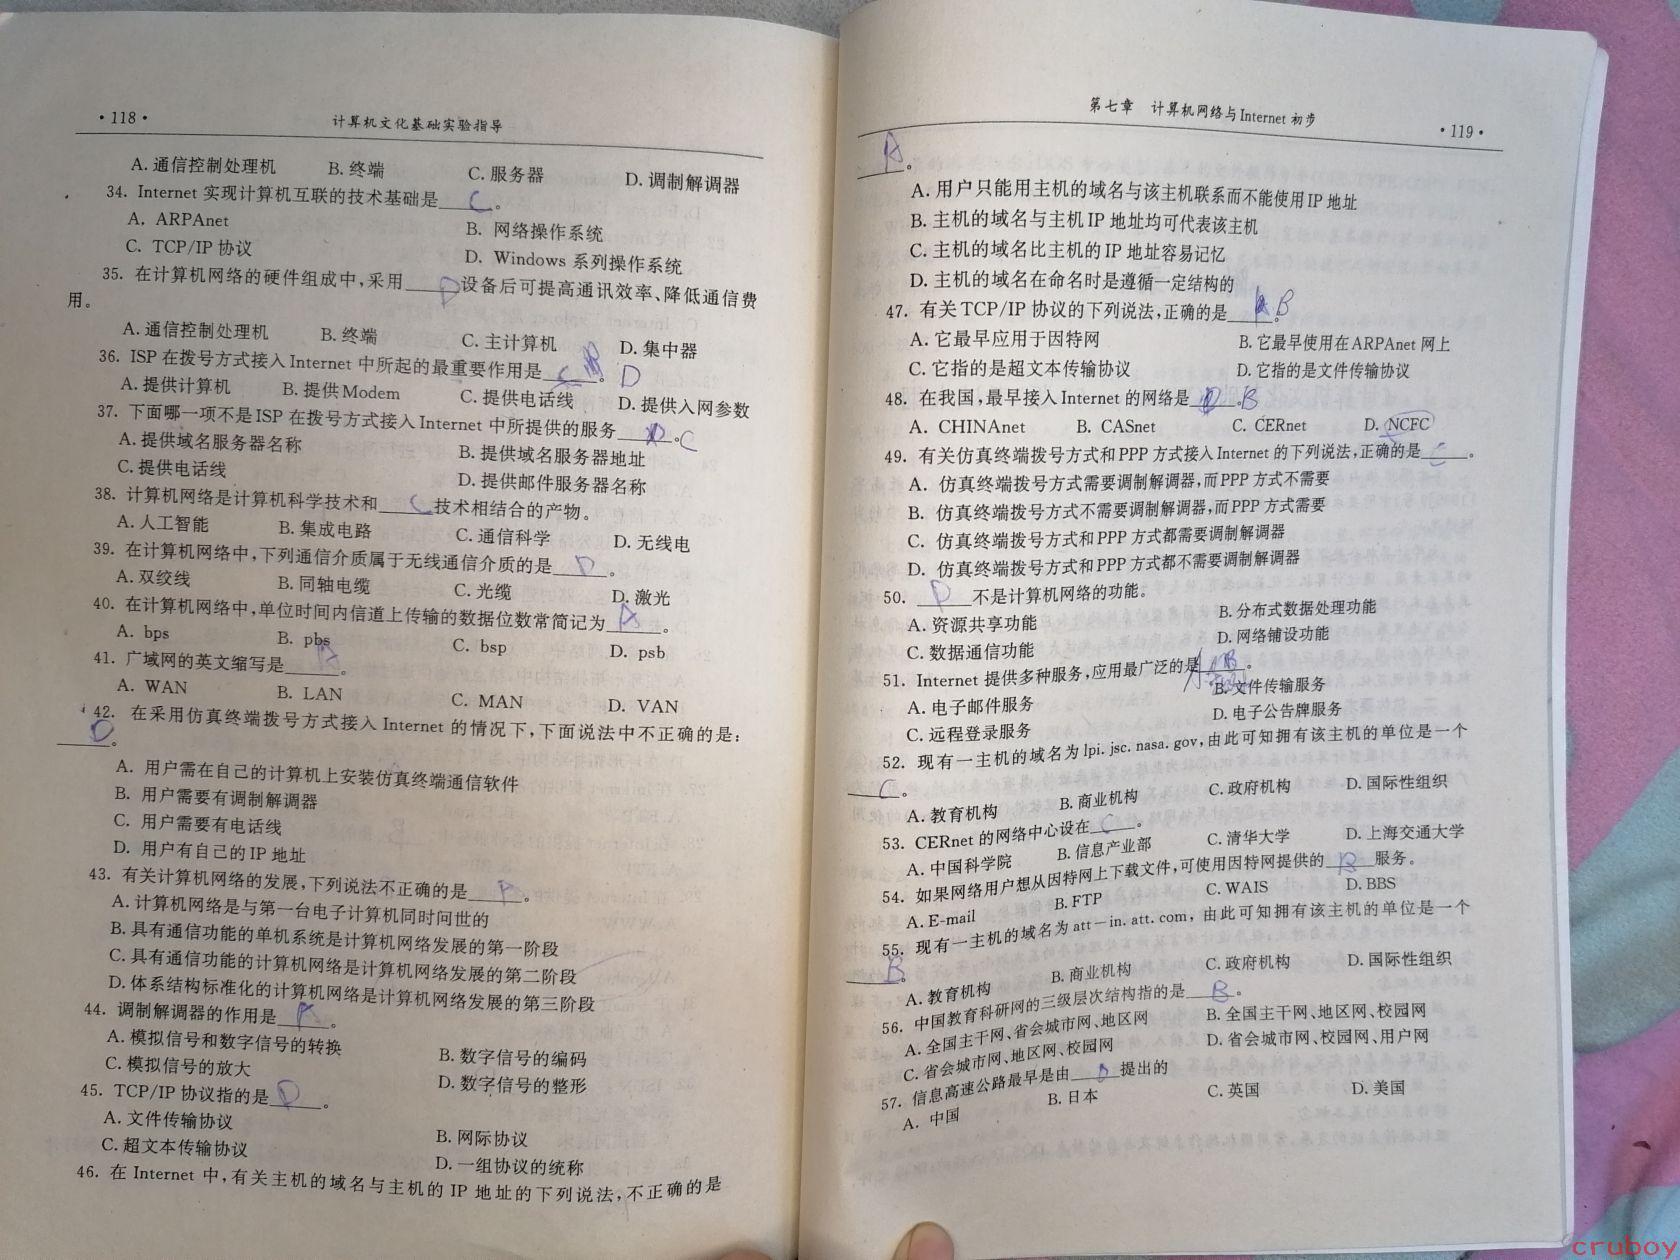 ·118·
计算机文化基础实验指导
A.通信控制处理机 B.终端 C.服务器 D.调制解调器
34. Internet 实现计算机互联的技术基础是 C 。
A. ARPAnet B. 网络操作系统
C. TCP/IP 协议 D. Windows 系列操作系统
35. 在计算机网络的硬件组成中,采用 D 设备后可提高通讯效率、降低通信费
用。
A.通信控制处理机 B.终端 C.主计算机 D.集中器
36. ISP 在拨号方式接入Internet 中所起的最重要作用是 。 D
A.提供计算机 B.提供Modem C.提供电话线 D.提供入网参数
37. 下面哪一项不是ISP 在拨号方式接入Internet 中所提供的服务 。C
A.提供域名服务器名称 B.提供域名服务器地址
C.提供电话线 D.提供邮件服务器名称
38. 计算机网络是计算机科学技术和 C 技术相结合的产物。
A.人工智能 B.集成电路 C.通信科学 D.无线电
39. 在计算机网络中,下列通信介质属于无线通信介质的是 D 。
A.双绞线 B.同轴电缆 C.光缆 D.激光
40. 在计算机网络中,单位时间内信道上传输的数据位数常简记为 A 。
A. bps B. pbs C. bsp D. psb
41. 广域网的英文缩写是 A 。
A. WAN B. LAN C. MAN D. VAN
42. 在采用仿真终端拨号方式接入 Internet 的情况下,下面说法中不正确的是:
D 。
A. 用户需在自己的计算机上安装仿真终端通信软件
B. 用户需要有调制解调器
C. 用户需要有电话线
D. 用户有自己的IP 地址
43. 有关计算机网络的发展,下列说法不正确的是 A 。
A.计算机网络是与第一台电子计算机同时问世的
B.具有通信功能的单机系统是计算机网络发展的第一阶段
C.具有通信功能的计算机网络是计算机网络发展的第二阶段
D.体系结构标准化的计算机网络是计算机网络发展的第三阶段
44. 调制解调器的作用是 A 。
A.模拟信号和数字信号的转换 B.数字信号的编码
C.模拟信号的放大 D.数字信号的整形
45. TCP/IP 协议指的是 D 。
A.文件传输协议 B.网际协议
C.超文本传输协议 D.一组协议的统称
46. 在 Internet 中,有关主机的域名与主机的 IP 地址的下列说法,不正确的是
第七章 计算机网络与Internet 初步
·119·
A 。
A.用户只能用主机的域名与该主机联系而不能使用IP 地址
B.主机的域名与主机IP 地址均可代表该主机
C.主机的域名比主机的IP 地址容易记忆
D.主机的域名在命名时是遵循一定结构的
47. 有关TCP/IP 协议的下列说法,正确的是 。B
A.它最早应用于因特网 B.它最早使用在ARPAnet 网上
C.它指的是超文本传输协议 D.它指的是文件传输协议
48. 在我国,最早接入Internet 的网络是 。B
A. CHINAnet B. CASnet C. CERnet D. NCFC
49. 有关仿真终端拨号方式和PPP 方式接入Internet 的下列说法,正确的是 C 。
A. 仿真终端拨号方式需要调制解调器,而PPP 方式不需要
B. 仿真终端拨号方式不需要调制解调器,而PPP 方式需要
C. 仿真终端拨号方式和PPP 方式都需要调制解调器
D. 仿真终端拨号方式和PPP 方式都不需要调制解调器
50. D 不是计算机网络的功能。
A.资源共享功能 B.分布式数据处理功能
C.数据通信功能 D.网络铺设功能
51. Internet 提供多种服务,应用最广泛的是 。
A.电子邮件服务 B.文件传输服务
C.远程登录服务 D.电子公告牌服务
52. 现有一主机的域名为lpi. jsc. nasa. gov,由此可知拥有该主机的单位是一个
C 。
A.教育机构 B.商业机构 C.政府机构 D.国际性组织
53. CERnet 的网络中心设在 C 。
A.中国科学院 B.信息产业部 C.清华大学 D.上海交通大学
54. 如果网络用户想从因特网上下载文件,可使用因特网提供的 B 服务。
A. E-mail B. FTP C. WAIS D. BBS
55. 现有一主机的域名为 att－in. att. com，由此可知拥有该主机的单位是一个
B 。
A.教育机构 B.商业机构 C.政府机构 D.国际性组织
56. 中国教育科研网的三级层次结构指的是 B 。
A.全国主干网、省会城市网、地区网 B.全国主干网、地区网、校园网
C.省会城市网、地区网、校园网 D.省会城市网、校园网、用户网
57. 信息高速公路最早是由 D 提出的
A. 中国 B.日本 C.英国 D.美国
cruboy